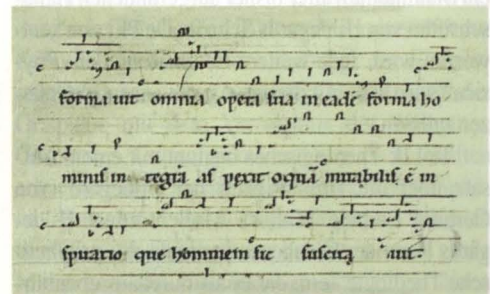 forma uit omnia opera sua in eadē forma ho
minis in tegra as pexit o quā mirabilis ē in
spiratio que hominem sic suscita uit.